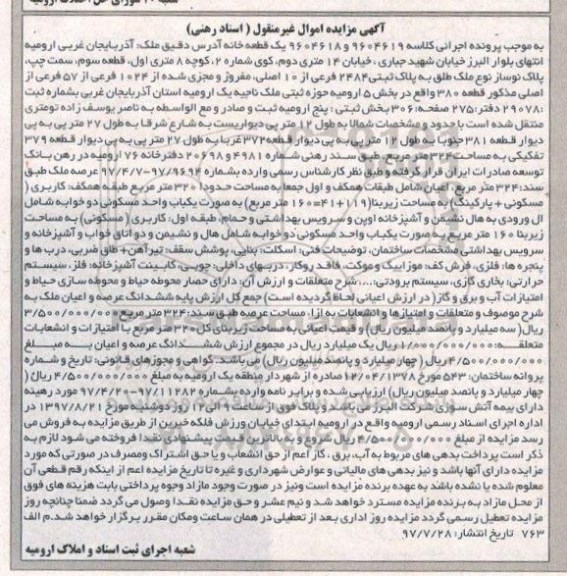 آگهی مزایده اموال غیرمنقول ( اسناد رهنی)
به موجب پرونده اجرائی کلاسه ۹۶۰۴۶۱۹ و ۹۶۰۴۶۱۸ یک قطعه خانه آدرس دقیق ملک: آذربایجان غربی ارومیه
انتهای بلوار البرز خیابان شهید جباری ، خیابان ۱۴ متری دوم، کوی شماره ۲، کوچه ۸ متری اول، قطعه سوم، سمت چپ،
پلاک نوساز نوع ملک طلق به پلاک ثبتی ۲۴۸۴ فرعی از ۱۰ اصلی، مفروز و مجزی شده از ۱۰۲۴ فرعی از ۵۷ فرعی از
اصلی مذکور قطعه ۳۸۰ واقع در بخش ۵ ارومیه حوزه ثبتی ملک ناحیه یک ارومیه استان آذربایجان غربی بشماره ثبت
۲۹۰۷۸ دفتر: ۲۷۵ صفحه: ۳۰۶ بخش ثبتی : پنج ارومیه ثبت و صادر و مع الواسطه به ناصر یوسف زاده تومتری
منتقل شده است با حدود و مشخصات شمالا به طول ۱۲ متر پی دیواریست به شارع شرقا به طول ۲۷ متر پی به پی
دیوار قطعه ۳۸۱ جنوبا به طول ۱۲ متر پی به پی دیوار قطعه ۳۷۲ غربا به طول ۲۷ متر پی به پی دیوار قطعه ۳۷۹
تفکیکی به مساحت ۳۲۴ متر مربع، طبق سند رهنی شماره ۴۹۸۱ و ۲۰۶۹۸ دفترخانه ۷۶ ارومیه در رهن بانک
توسعه صادرات ایران قرار گرفته و طبق نظر کارشناس رسمی وارده بشماره ۹۶۹۴-۹۷/۴/۷ عرصه ملک طبق
سند: ۳۲۴ متر مربع اعیان شامل طبقات همکف و اول جمعا به مساحت حدودا ۳۲۰ متر مربع طبقه همکف: کاربری (
مسکونی + پارکینگ) به مساحت زیربنا (۱۱۹+۴۱=۱۶۰ متر مربع) به صورت یکباب واحد مسکونی دو خوابه شامل
ال ورودی به هال نشیمن و آشپزخانه اوپن و سرویس بهداشتی و حمام، طبقه اول: کاربری ( مسکونی) به مساحت
زیربنا ۱۶۰ متر مربع به صورت یکباب واحد مسکونی دو خوابه شامل هال و نشیمن و دو اتاق خواب و آشپزخانه و
سرویس بهداشتی مشخصات ساختمان، توضیحات فنی: اسکلت: بنایی، پوشش سقف: تیرآهن + طاق ضربی، درب ها و
پنجره ها: فلزی، فرش کف: موزاییک و موکت، فاقد روکار، دربهای داخلی: چوبی، کابینت آشپزخانه: فلز، سیستم
حرارتی: بخاری گازی، سیستم برودتی:.....شرح متعلقات و ارزش آن: دارای حصار محوطه حیاط و محوطه سازی حیاط و
امتیازات آب و برق و گاز ( در ارزش اعیانی لحاظ گردیده است) جمع کل ارزش پایه ششدانگ عرصه و اعیان ملک به
شرح موصوف و متعلقات و امتیازها و انشعابات به ازا، مساحت عرصه طبق سند: ۳۲۴ متر مربع ۳/۵۰۰/۰۰۰/۰۰۰
ریال( سه میلیارد و پانصد میلیون ریال) و قیمت اعیانی به مساحت زیربنای کل ۳۲۰ متر مربع با امتیازات و انشعابات
متعلقه: ۱/۰۰۰/۰۰۰/۰۰۰ ریال یک میلیارد ریال در مجموع ارزش ششدانگ عرصه و اعیان به مبلغ
۴/۵۰۰/۰۰۰/۰۰۰ ریال ( چهار میلیارد و پانصد میلیون ریال) می باشد. گواهی و مجوزهای قانونی: تاریخ و شماره
پروانه ساختمان: ۵۴۳ مورخ ۱۲/۰۴/۱۳۷۸ صادره از شهردار منطقه یک ارومیه به مبلغ ۴/۵۰۰/۰۰۰/۰۰۰ ریال (
چهار میلیارد و پانصد میلیون ریال) ارزیابی شده و برابر نامه وارده بشماره ۱۱۲۸۲-۹۷/۴/۲۰ مورد رهینه
دارای بیمه آتش سوزی شرکت البرز می باشد و پلاک فوق از ساعت ۹ الی ۱۲ روز دوشنبه مورخ ۱۳۹۷/۸/۲۱ در
اداره اجرای اسناد رسمی ارومیه واقع در ارومیه ابتدای خیابان ورزش فلکه خبرین از طریق مزایده به فروش می
رسد مزایده از مبلغ ۴/۵۰۰/۰۰۰/۰۰۰ ریال شروع و به بالاترین قیمت پیشنهادی نقدا فروخته می شود لازم به
ذکر است پرداخت بدهی های مربوط به آب، برق ، گاز اعم از حق انشعاب و یا حق اشتراک و مصرف در صورتی که مورد
مزایده دارای آنها باشد و نیز بدهی های مالیاتی و عوارض شهرداری و غیره تا تاریخ مزایده اعم از اینکه رقم قطعی آن
معلوم شده یا نشده باشد به عهده برنده مزایده است و نیز در صورت وجود مازاد وجوه پرداختی بابت هزینه های فوق
از محل مازاد به برنده مزایده مسترد خواهد شد و نیم عشر و حق مزایده نقدا وصول می گردد ضمنا چنانچه روز
مزایده تعطیل رسمی گردد مزایده روز اداری بعد از تعطیلی در همان ساعت و مکان مقرر برگزار خواهد شد. م الف
۷۶۳ تاریخ انتشار: ۹۷/۷/۲۸
شعبه اجرای ثبت اسناد و املاک ارومیه